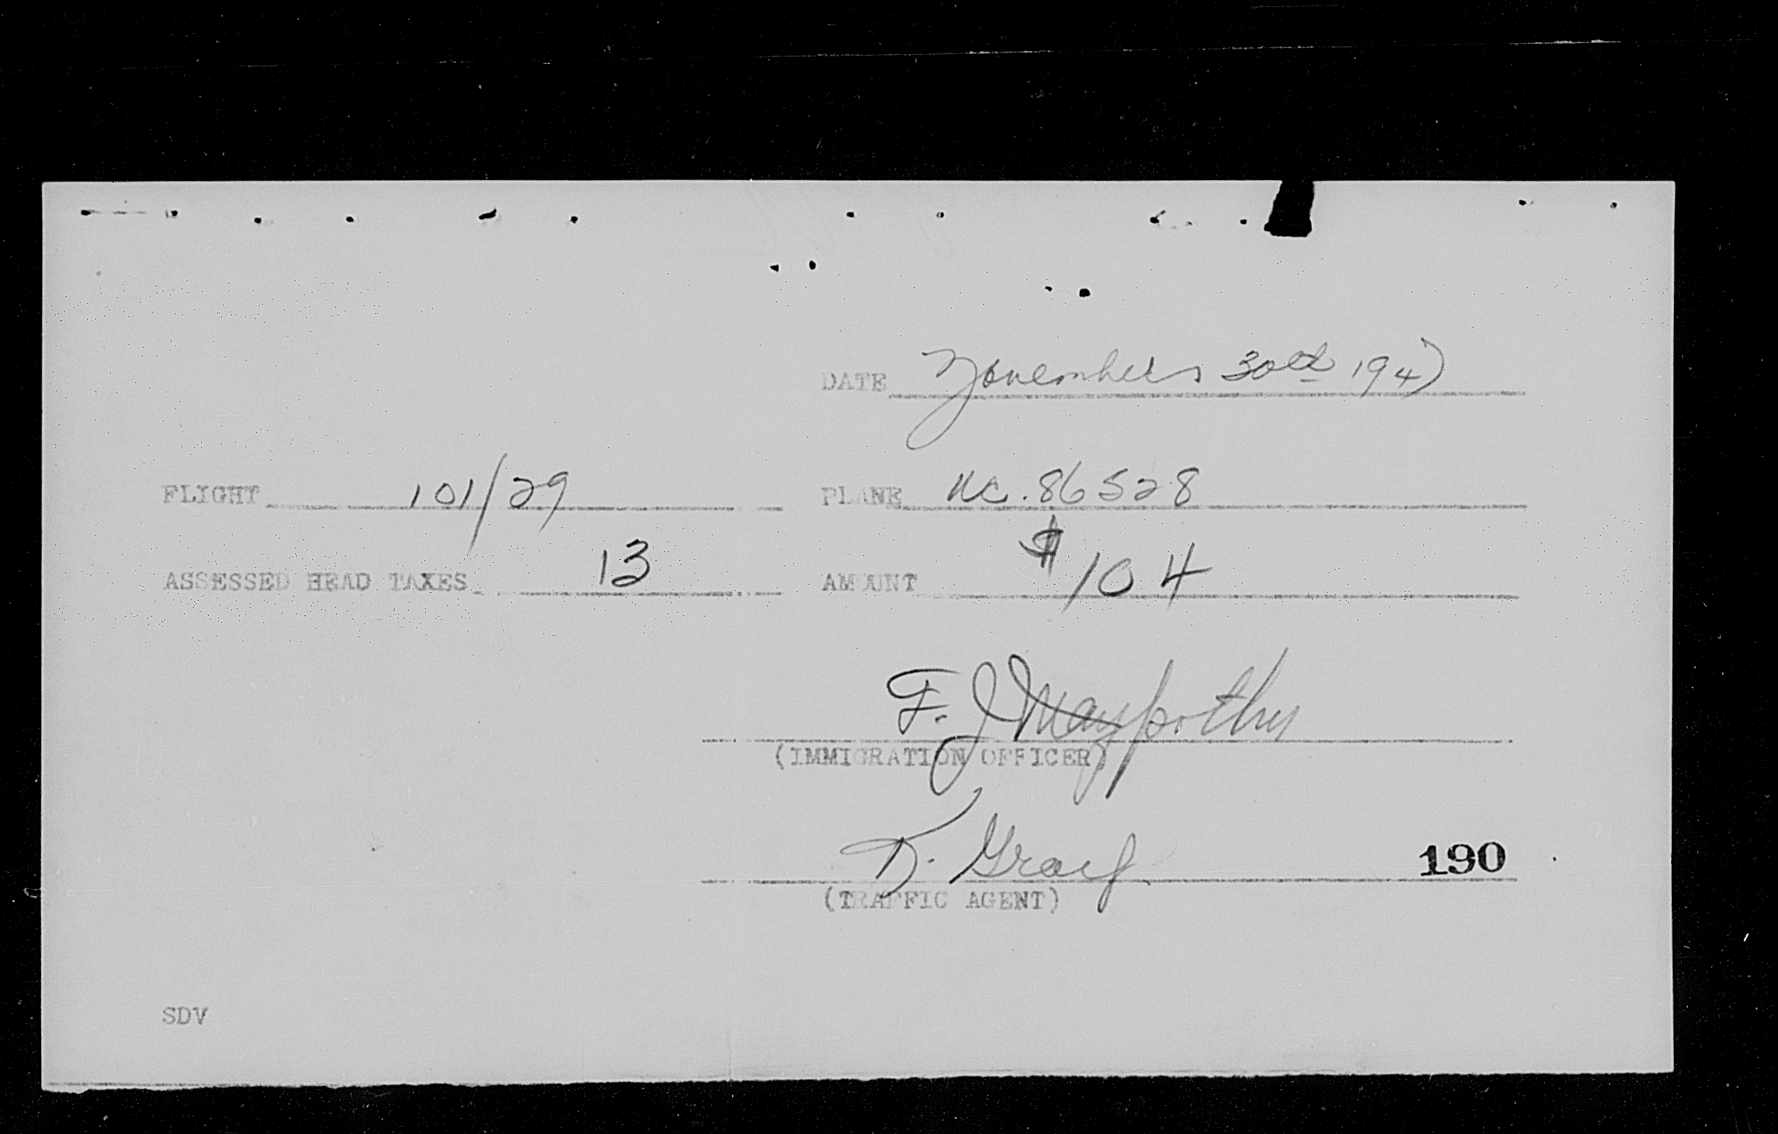 DATE November 30th 1947
FLIGHT 101/29 PLANE NC. 86528
ASSESSED HEAD TAXES 13 AMOUNT $104
F. J.
(IMMIGRATION OFFICER)
190
(TRAFFIC AGENT)
SDV